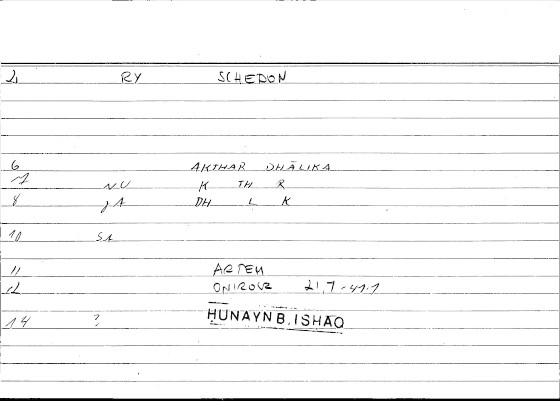 2, RY SCHEDON
6 AKTHAR DHĀLIKA
7 NU K TH R
8 JA DH L K
10 SA
11 ARTEM
12 ONIROCR 21,7-41.1
14 ? HUNAYN B. ISHAQ